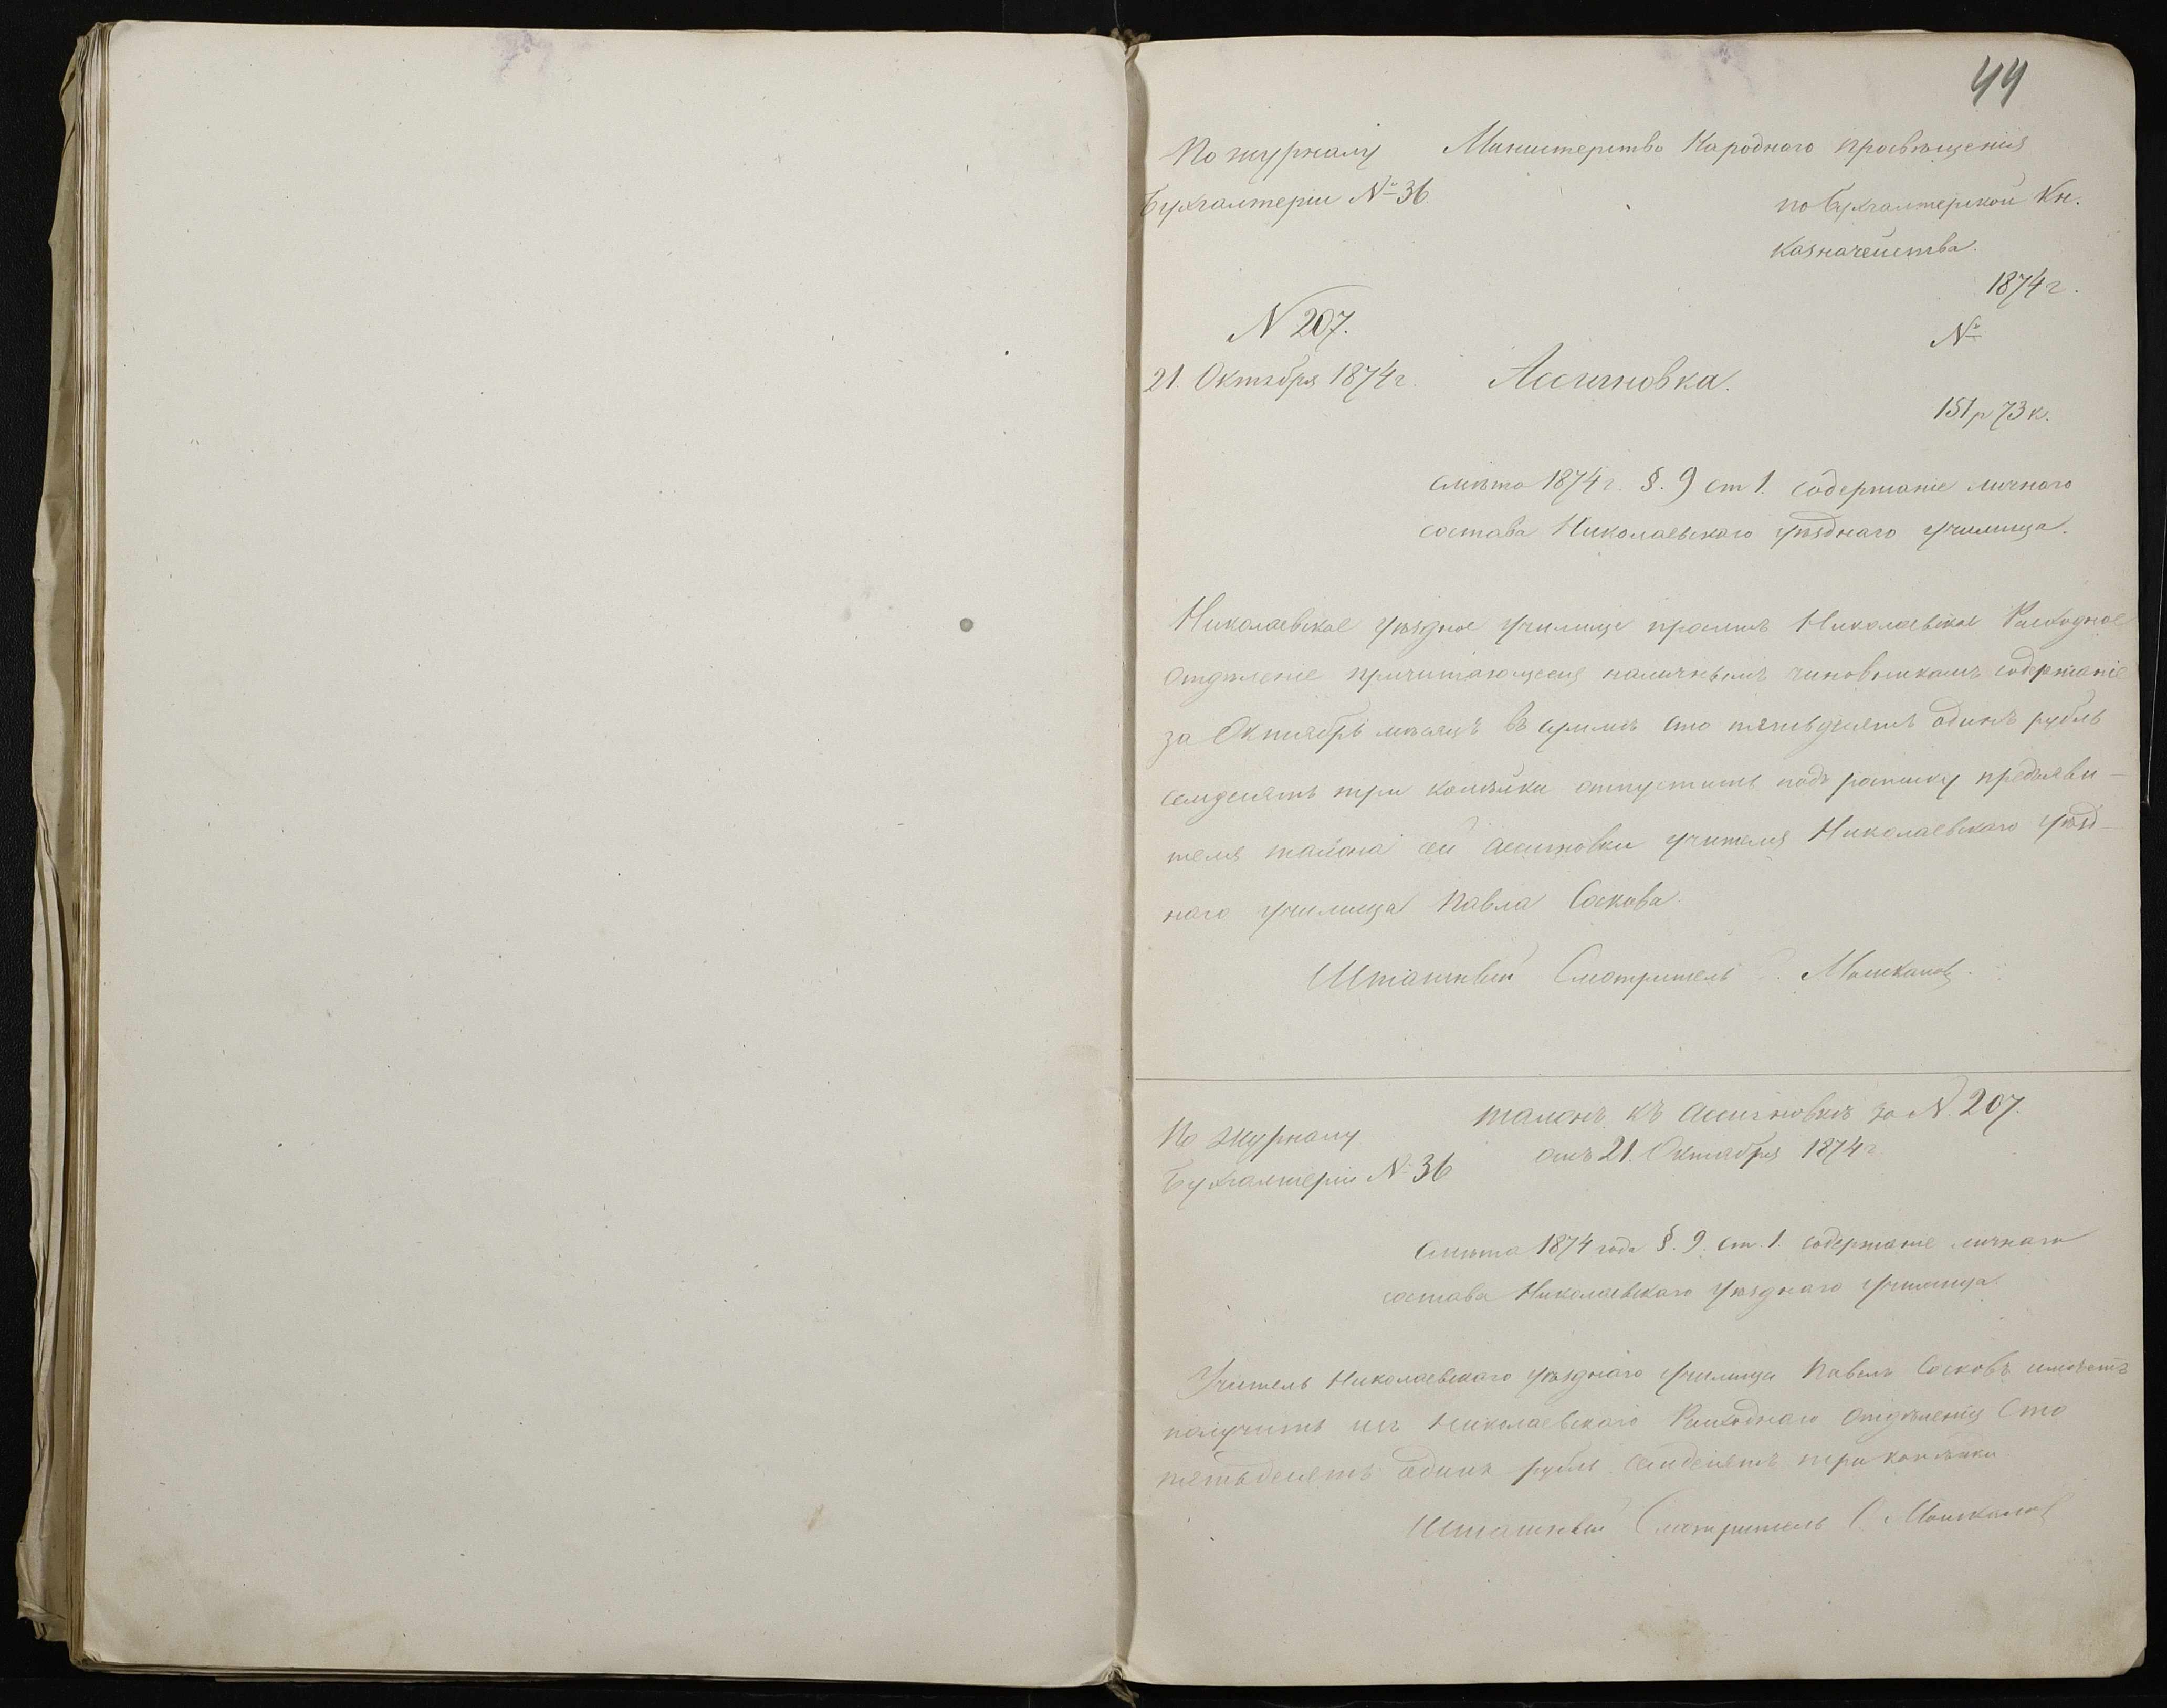 44
По журналу
Бухгалтеріи № 36.
Министерство Народнаго просвѣщенія
по бухгалтерской Кн.
Казначейства.
1874 г.
№
N 207.
21. Октября 1874 г.
Ассигновка.
151 р 73 к.
смѣта 1874 г. §. 9 ст 1. содержаніе личнаго
состава Николаевскаго уѣзднаго училища.
Николаевское уѣздное училище проситъ Николаевское Расходное
Отдѣленіе причитающееся наличнымъ чиновникамъ содержаніе
за Октябрь мѣсяцъ въ суммѣ сто пятьдесятъ одинъ рубль
семдесятъ три копѣйки отпустить подъ росписку предъяви-
теля талона сей ассигновки учителя Николаевскаго уѣзд-
наго училища Павла Соскова.
Штатный Смотритель
По журналу
Бухгалтеріи № 36
талонъ къ ассигновкѣ за N. 207.
отъ 21. Октября 1874 г.
Смѣта 1874 года §. 9. ст. 1. содержаніе личнаго
состава Николаевскаго уѣзднаго училища.
Учитель Николаевскаго уѣзднаго училища Павелъ Сосковъ имѣетъ
получить изъ Николаевскаго Расходнаго Отдѣленія Сто
пятьдесятъ одинъ рубль семдесятъ три копѣйки.
Штатный Смотритель